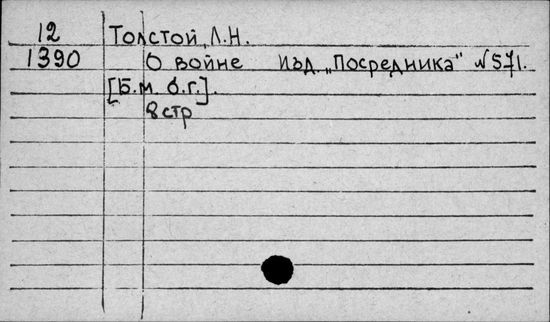 12 Толстой, Л.Н.
1390 О войне изд. „Посредника" №571.
[Б.м. б.г.].
8 стр